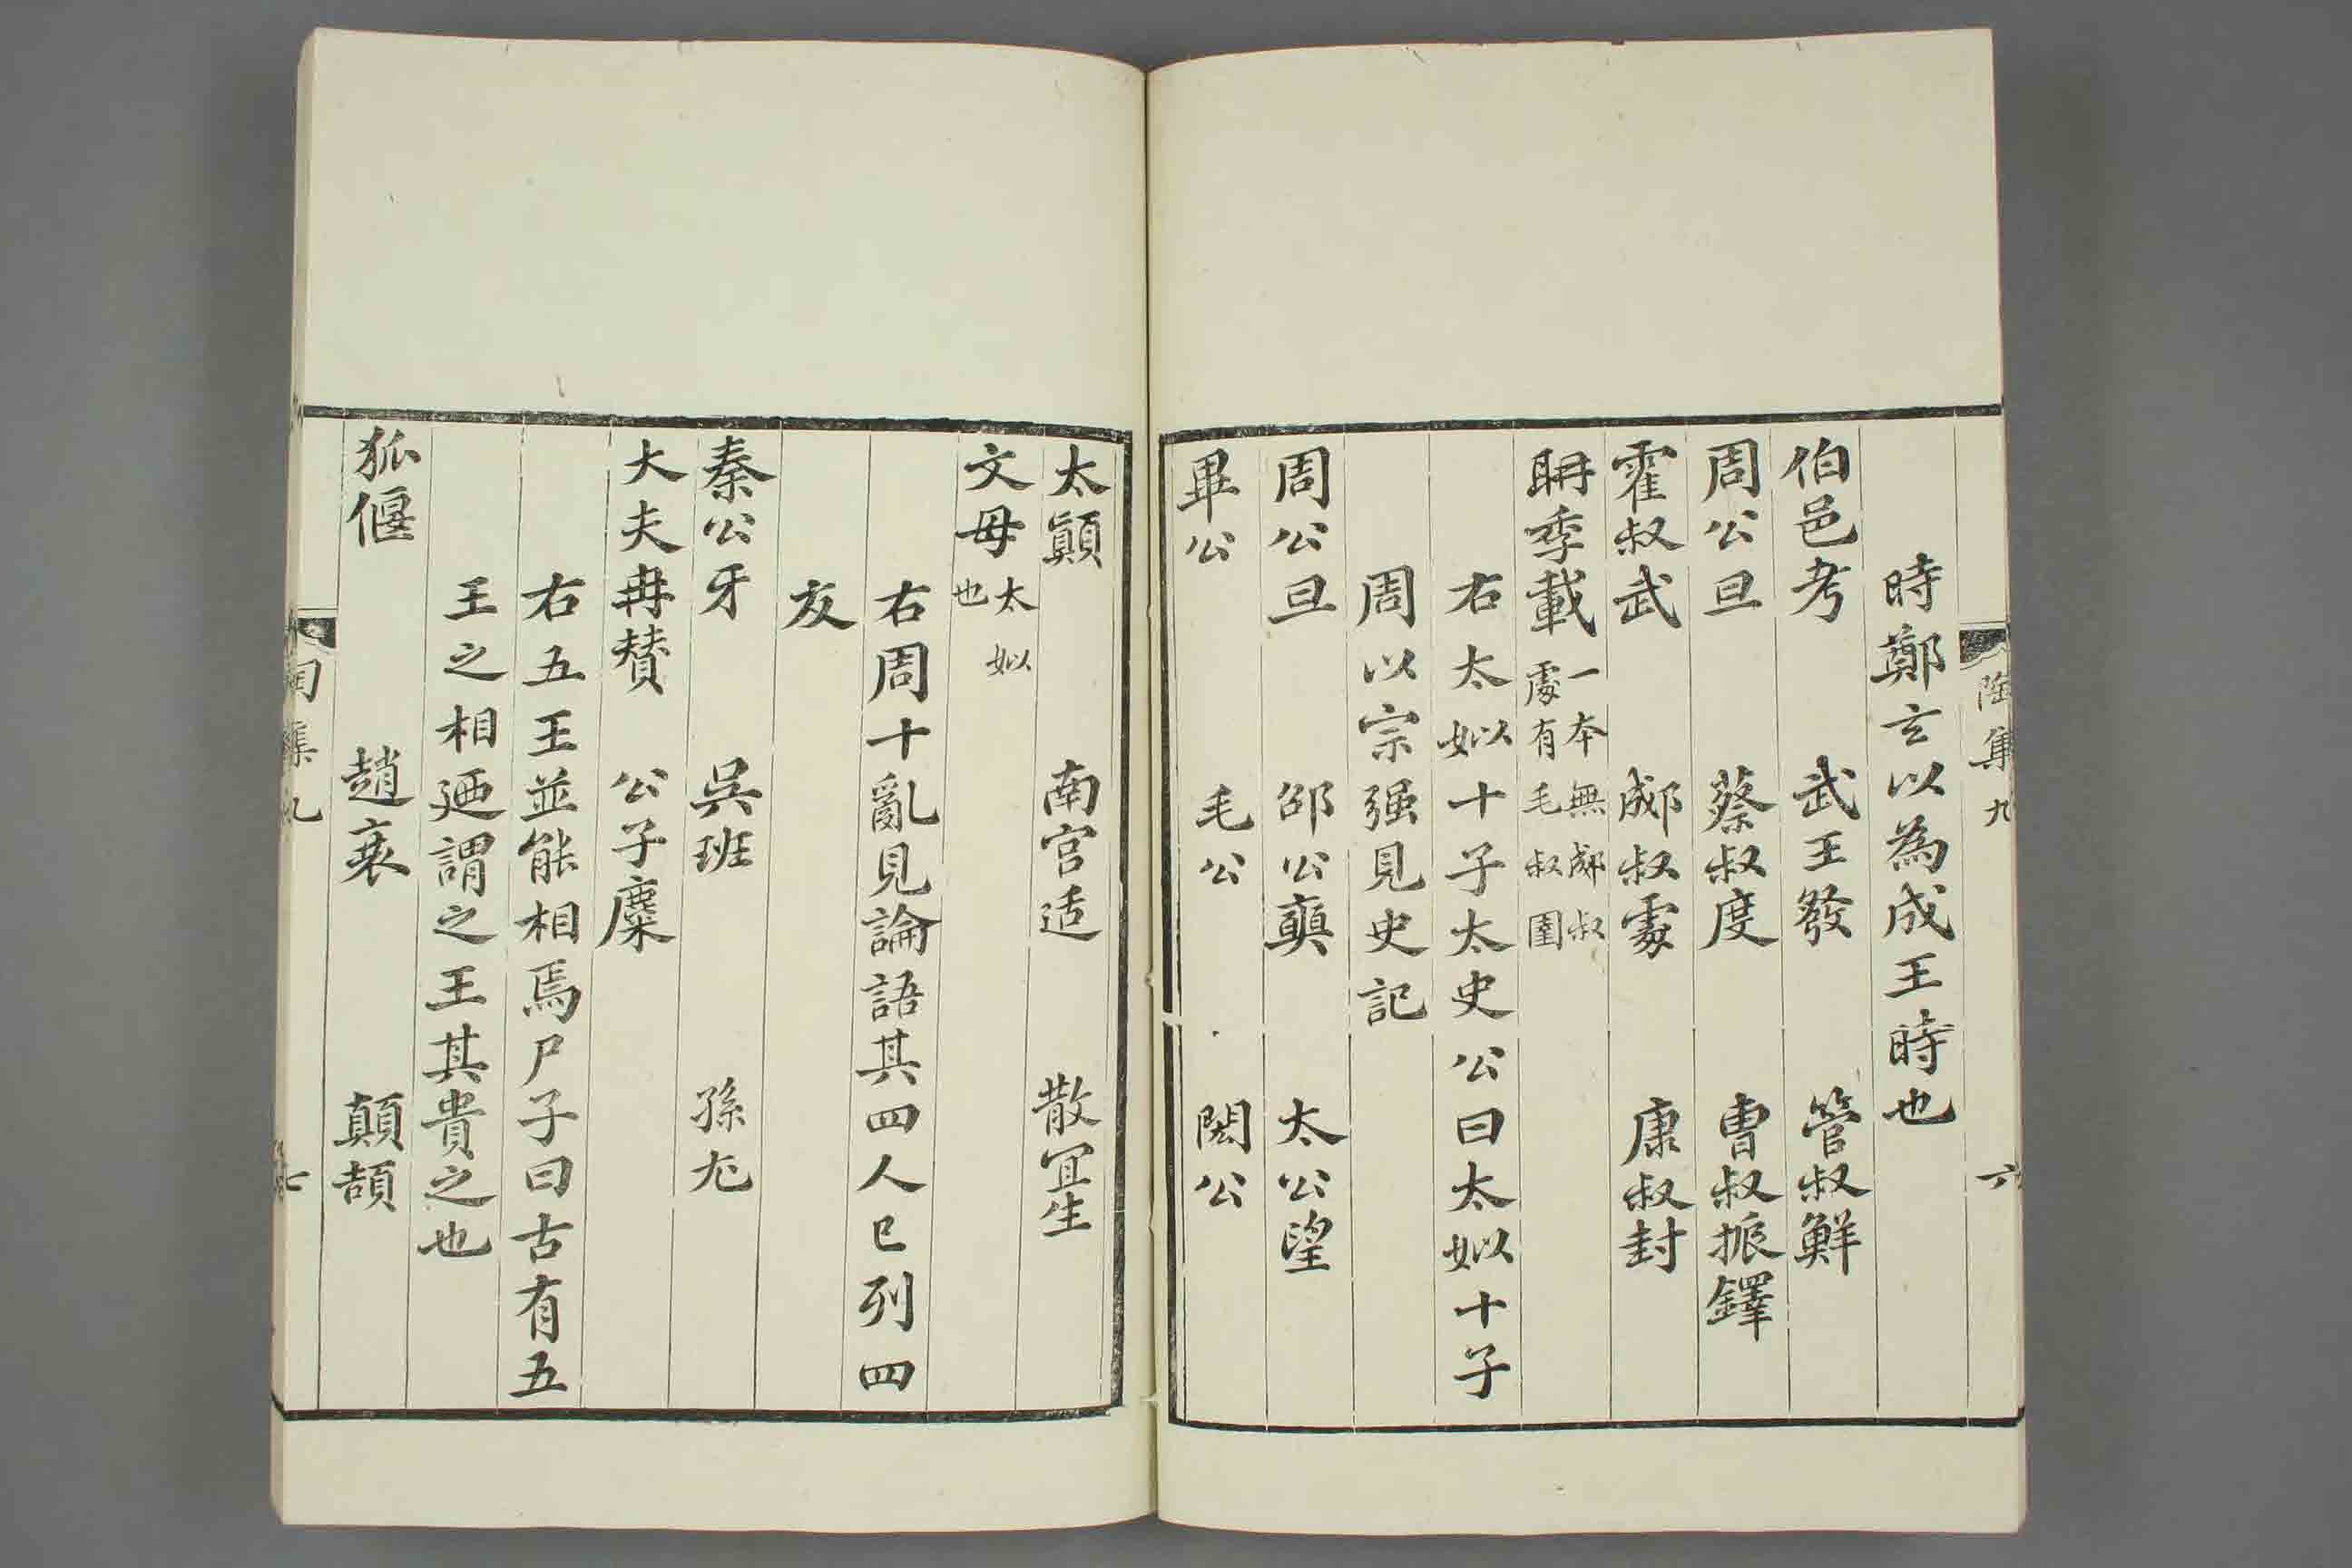 陶集九　六
時鄭玄以為成王時也
伯邑考　武王發　管叔鮮
周公旦　蔡叔度　曹叔振鐸
霍叔武　郕叔處　康叔封
聃季載 一本無郕叔
處有毛叔圉
右太姒十子太史公曰太姒十子
周以宗强見史記
周公旦　邵公奭　太公望
畢公　毛公　閎公
太顛　南宮适　散宜生
文母 太姒
也
右周十亂見論語其四人已列四
友
秦公牙　吳班　孫尤
大夫冉贊　公子麋
右五王並能相焉尸子曰古有五
王之相廼謂之王其貴之也
狐偃　趙衰　顛頡
陶集九　七